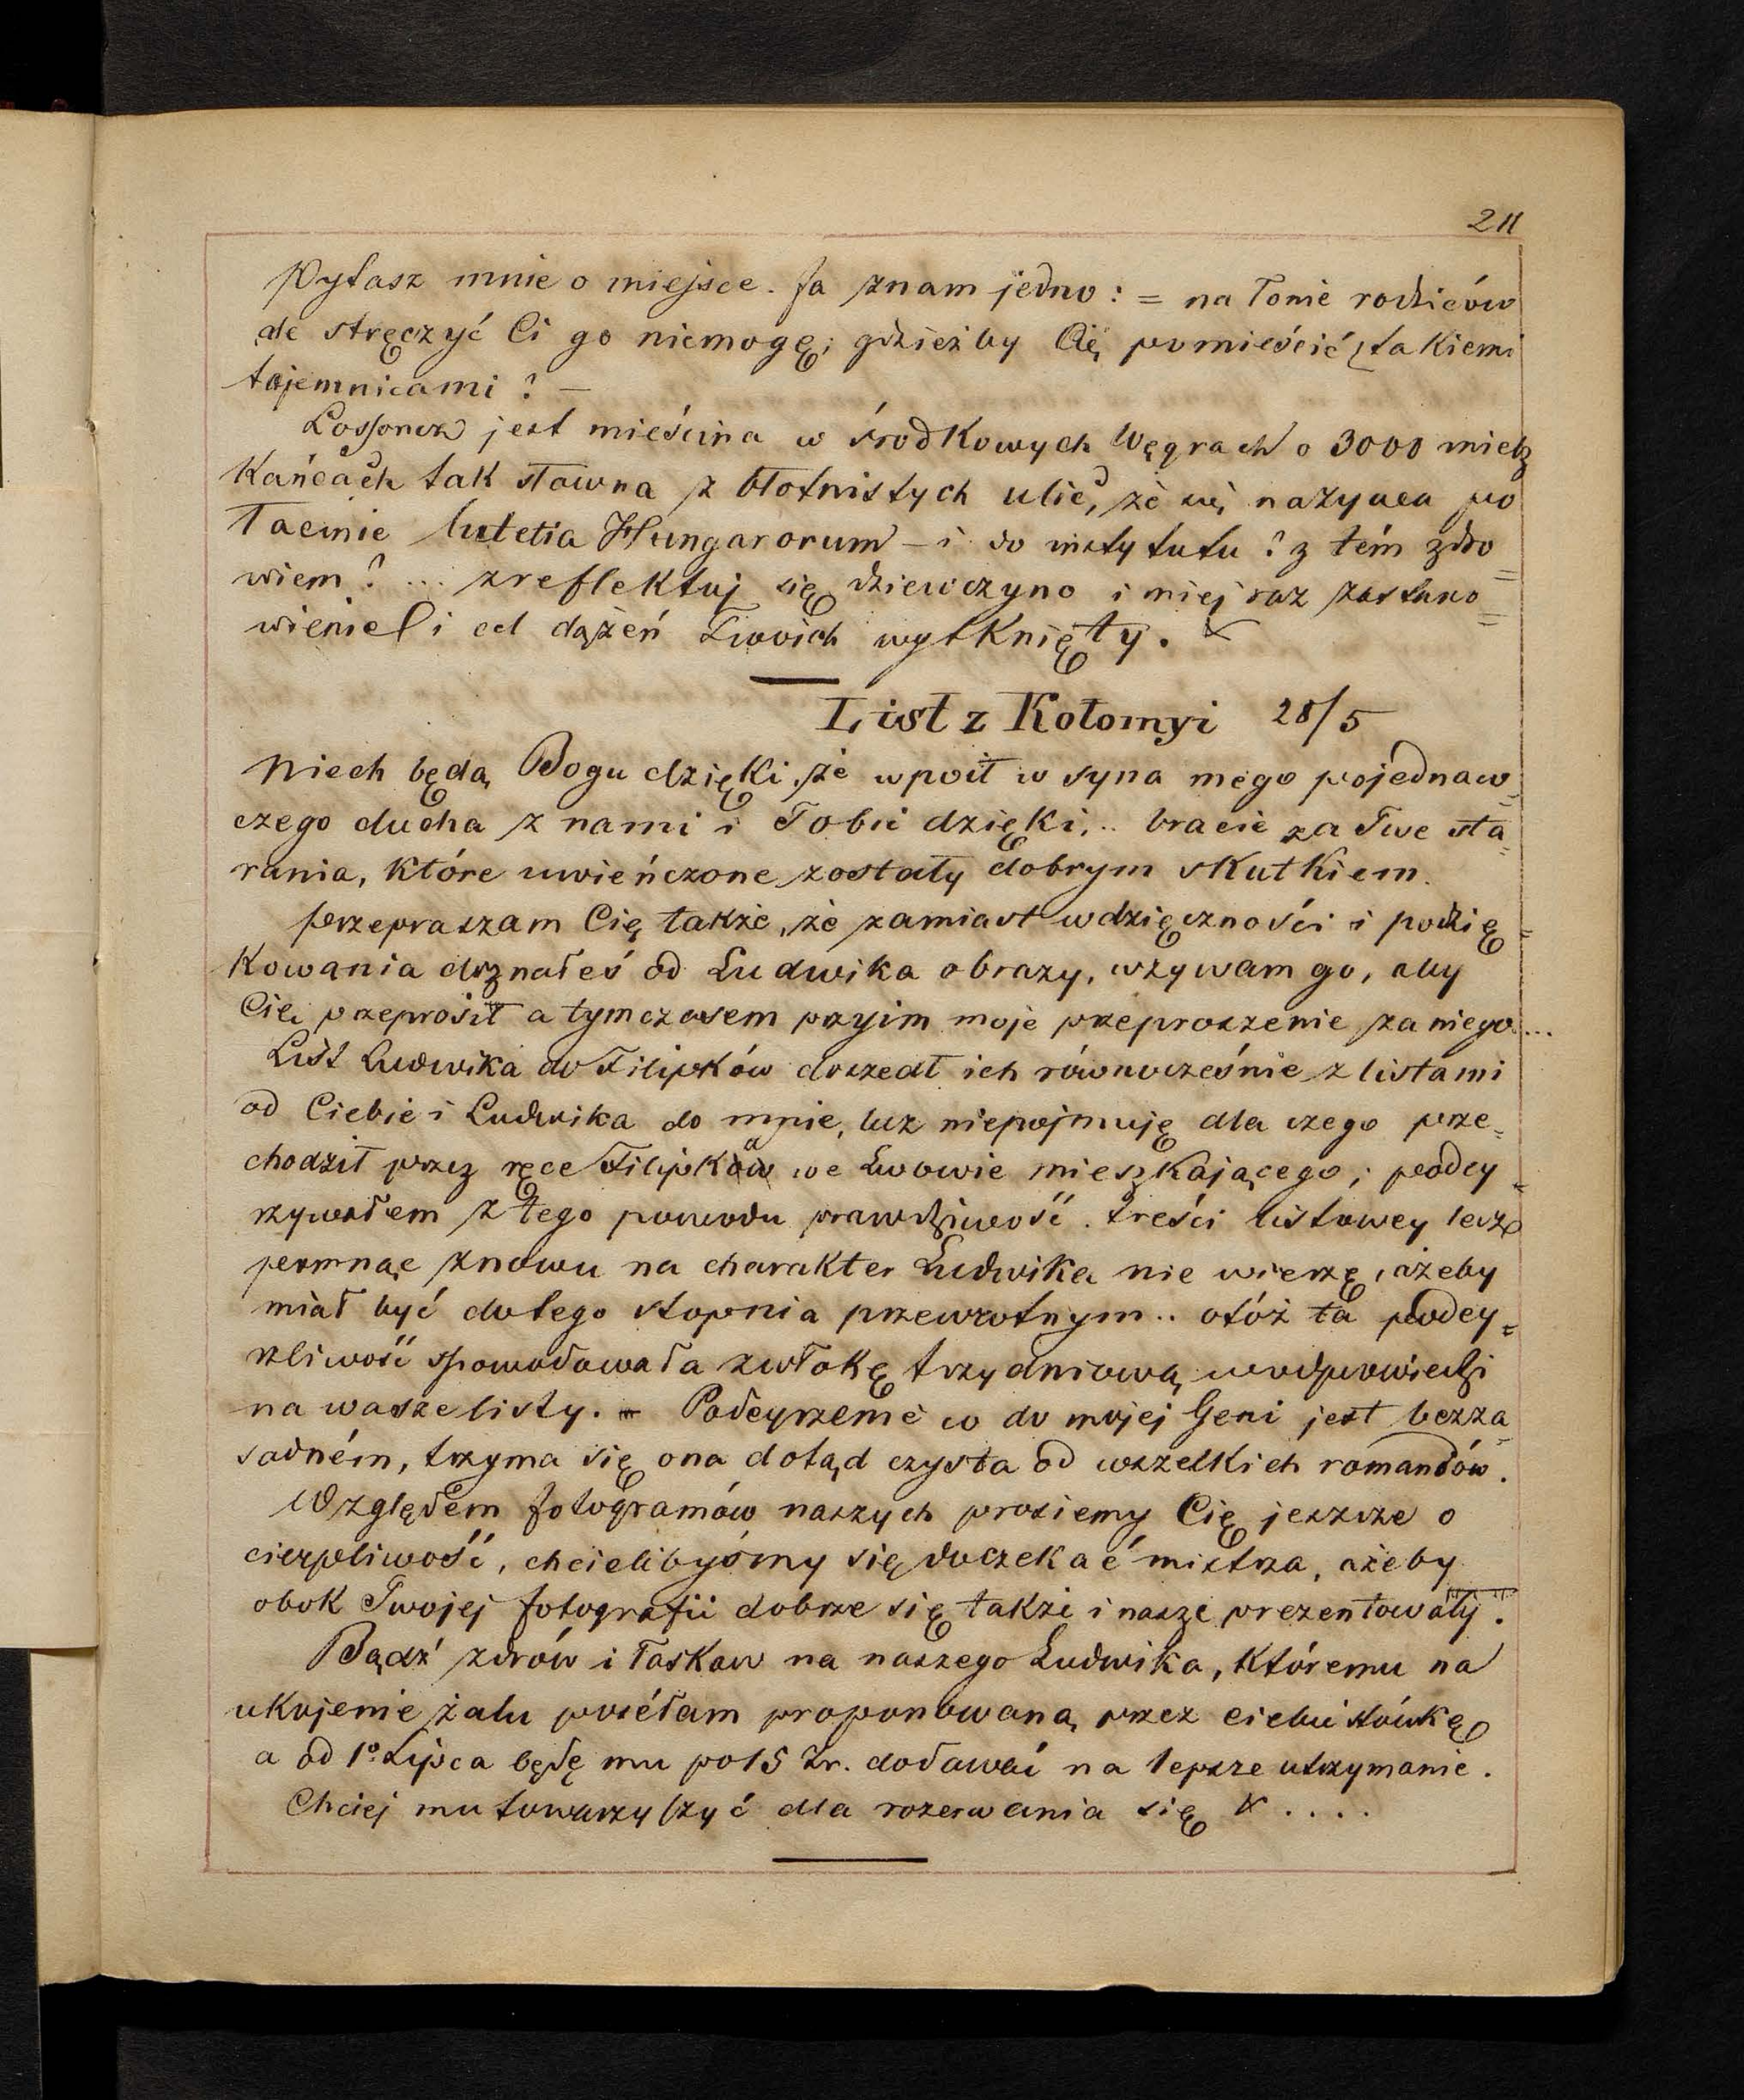 211
Pytasz mnie o miejsce. Ja znam jedno: = na łonie rodziców
ale stręczyć Ci go niemogę; gdzieżby Cię pomieścić z takiemi
tajemnicami? —
Lossoncz jest mieścina w środkowych Węgrach o 3000 miesz
kańcach tak sławna z błotnistych ulic, że się nazywa po
łacinie lutetia Hungarorum – i do instytutu? z tém zdro=
wiem? ... zreflektuj się dziewczyno i miej raz zastano=
wienie i cel dążeń Twoich wytknięty.
List z Kołomyi 28/5
Niech będą Bogu dzięki, że wpoił w syna mego pojednaw=
czego ducha z nami i Tobie dzięki... bracie za Twe sta=
rania, które uwieńczone zostały dobrym skutkiem.
przepraszam Cię także, że zamiast wdzięczności i podzię=
kowania doznałeś od Ludwika obrazy, wzywam go, aby
Cię przeprosił a tymczasem przyim moje przeproszenie za niego...
List Ludwika do Filipków doszedł ich równocześnie z listami
od Ciebie i Ludwika do mnie, lecz niepojmuję dla czego prze=
chodził przez ręce Filipka we Lwowie mieszkającego; podey=
rzywałem z tego powodu prawdziwość treści listowey lecz
pomnąc znowu na charakter Ludwika nie wierzę, ażeby
miał być do tego stopnia przewrotnym.. otóż ta podey=
rzliwość spowodowała zwłokę trzydniową w odpowiedzi
na wasze listy. – Podeyrzenie co do mojej Geni jest bezza=
sadném, trzyma się ona dotąd czysta od wszelkich romansów.
Względem fotogramów naszych prosiemy Cię jeszcze o
cierpliwość, chcielibyśmy się doczekać mistrza, ażeby
obok Twojej fotografii dobrze się także i nasze prezentowały.
Bądź zdrów i łaskaw na naszego Ludwika, któremu na
ukojenie żalu posełam proponowaną przez ciebie stówkę
a od 1º Lipca będę mu po 15 Zr. dodawać na lepsze utrzymanie.
Chciej mu towarzyszyć dla rozerwania się ....